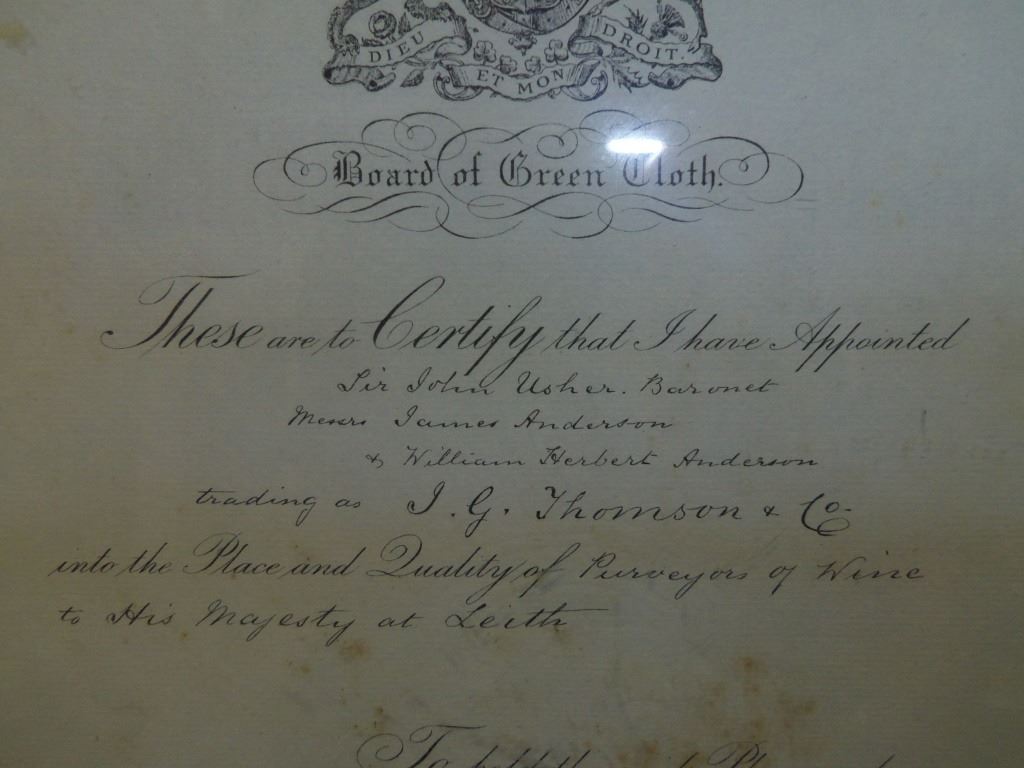 DIEU ET MON DROIT.
Board of Green Cloth.
These are to Certify that I have Appointed
Sir John Usher. Baronet
Messrs James Anderson
& William Herbert Anderson
trading as J. G. Thomson & Co.
into the Place and Quality of Purveyors of Wine
to His Majesty at Leith
To hold the said Place